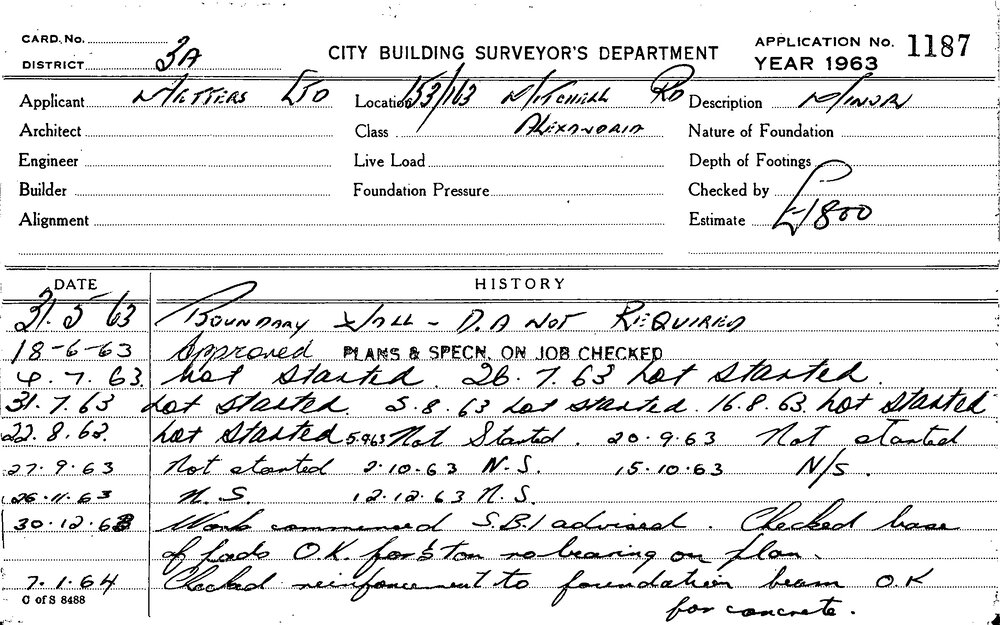 CARD. No.
DISTRICT 3A
CITY BUILDING SURVEYOR'S DEPARTMENT
APPLICATION No. 1187
YEAR 1963
Applicant METTERS LTD Location 153/163 MITCHELL RD Description MINOR
Architect Class ALEXANDRIA Nature of Foundation
Engineer Live Load Depth of Footings
Builder Foundation Pressure Checked by
Alignment Estimate £1800
DATE HISTORY
31. 5 63 BOUNDARY WALL - D.A NOT REQUIRED
18-6-63 Approved PLANS & SPECN. ON JOB CHECKED
4. 7. 63. Not started. 26. 7. 63 Not started.
31. 7. 63 Not started. 5. 8. 63 Not started. 16. 8. 63. Not started
22. 8. 63. Not started 5.9.63 Not Started. 20. 9. 63 Not started
27. 9. 63 Not started 2. 10. 63 N.S. 15. 10. 63 N/S.
26. 11. 63 N.S 12. 12. 63 N.S.
30. 12. 63 Work commenced S.B.I advised. Checked base
of pads O.K. for 5 ton no bearing on plan.
7. 1. 64 Checked reinforcement to foundation beam O.K
for concrete.
C of S 8488